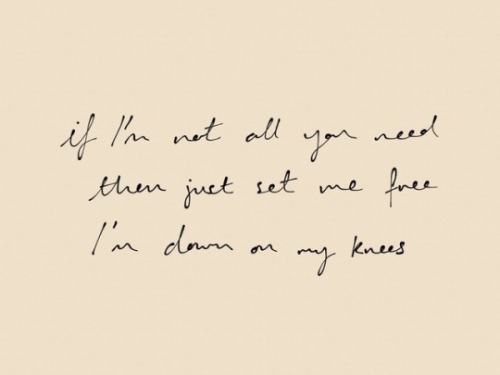 if I'm not all you need
then just set me free
I'm down on my knees